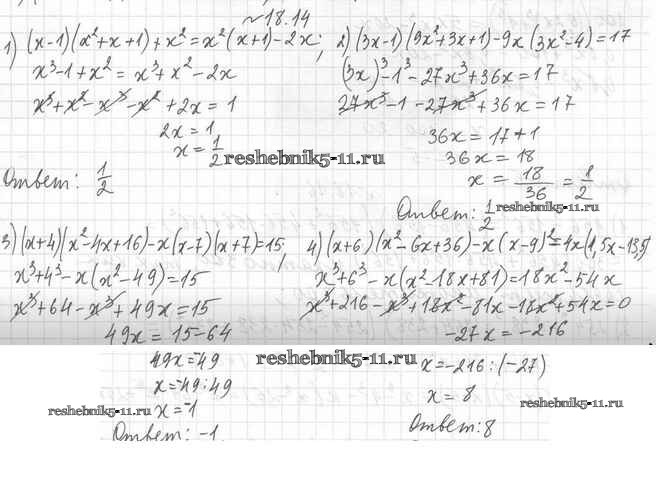 ~18.14
1) (x-1)(x²+x+1)+x²=x²(x+1)-2x;
x³-1+x²=x³+x²-2x
x³+x²-x³-x²+2x=1
2x=1
x=1/2
Ответ: 1/2
2) (3x-1)(9x²+3x+1)-9x(3x²-4)=17
(3x)³-1³-27x³+36x=17
27x³-1-27x³+36x=17
36x=17+1
36x=18
x=18/36=1/2
Ответ: 1/2
reshebnik5-11.ru
reshebnik5-11.ru
3) (x+4)(x²-4x+16)-x(x-7)(x+7)=15;
x³+4³-x(x²-49)=15
x³+64-x³+49x=15
49x=15-64
49x=-49
x=-49:49
x=-1
Ответ: -1
4) (x+6)(x²-6x+36)-x(x-9)²=4x(4,5x-13,5)
x³+6³-x(x²-18x+81)=18x²-54x
x³+216-x³+18x²-81x-18x²+54x=0
-27x=-216
x=-216:(-27)
x=8
Ответ: 8
reshebnik5-11.ru
reshebnik5-11.ru
reshebnik5-11.ru